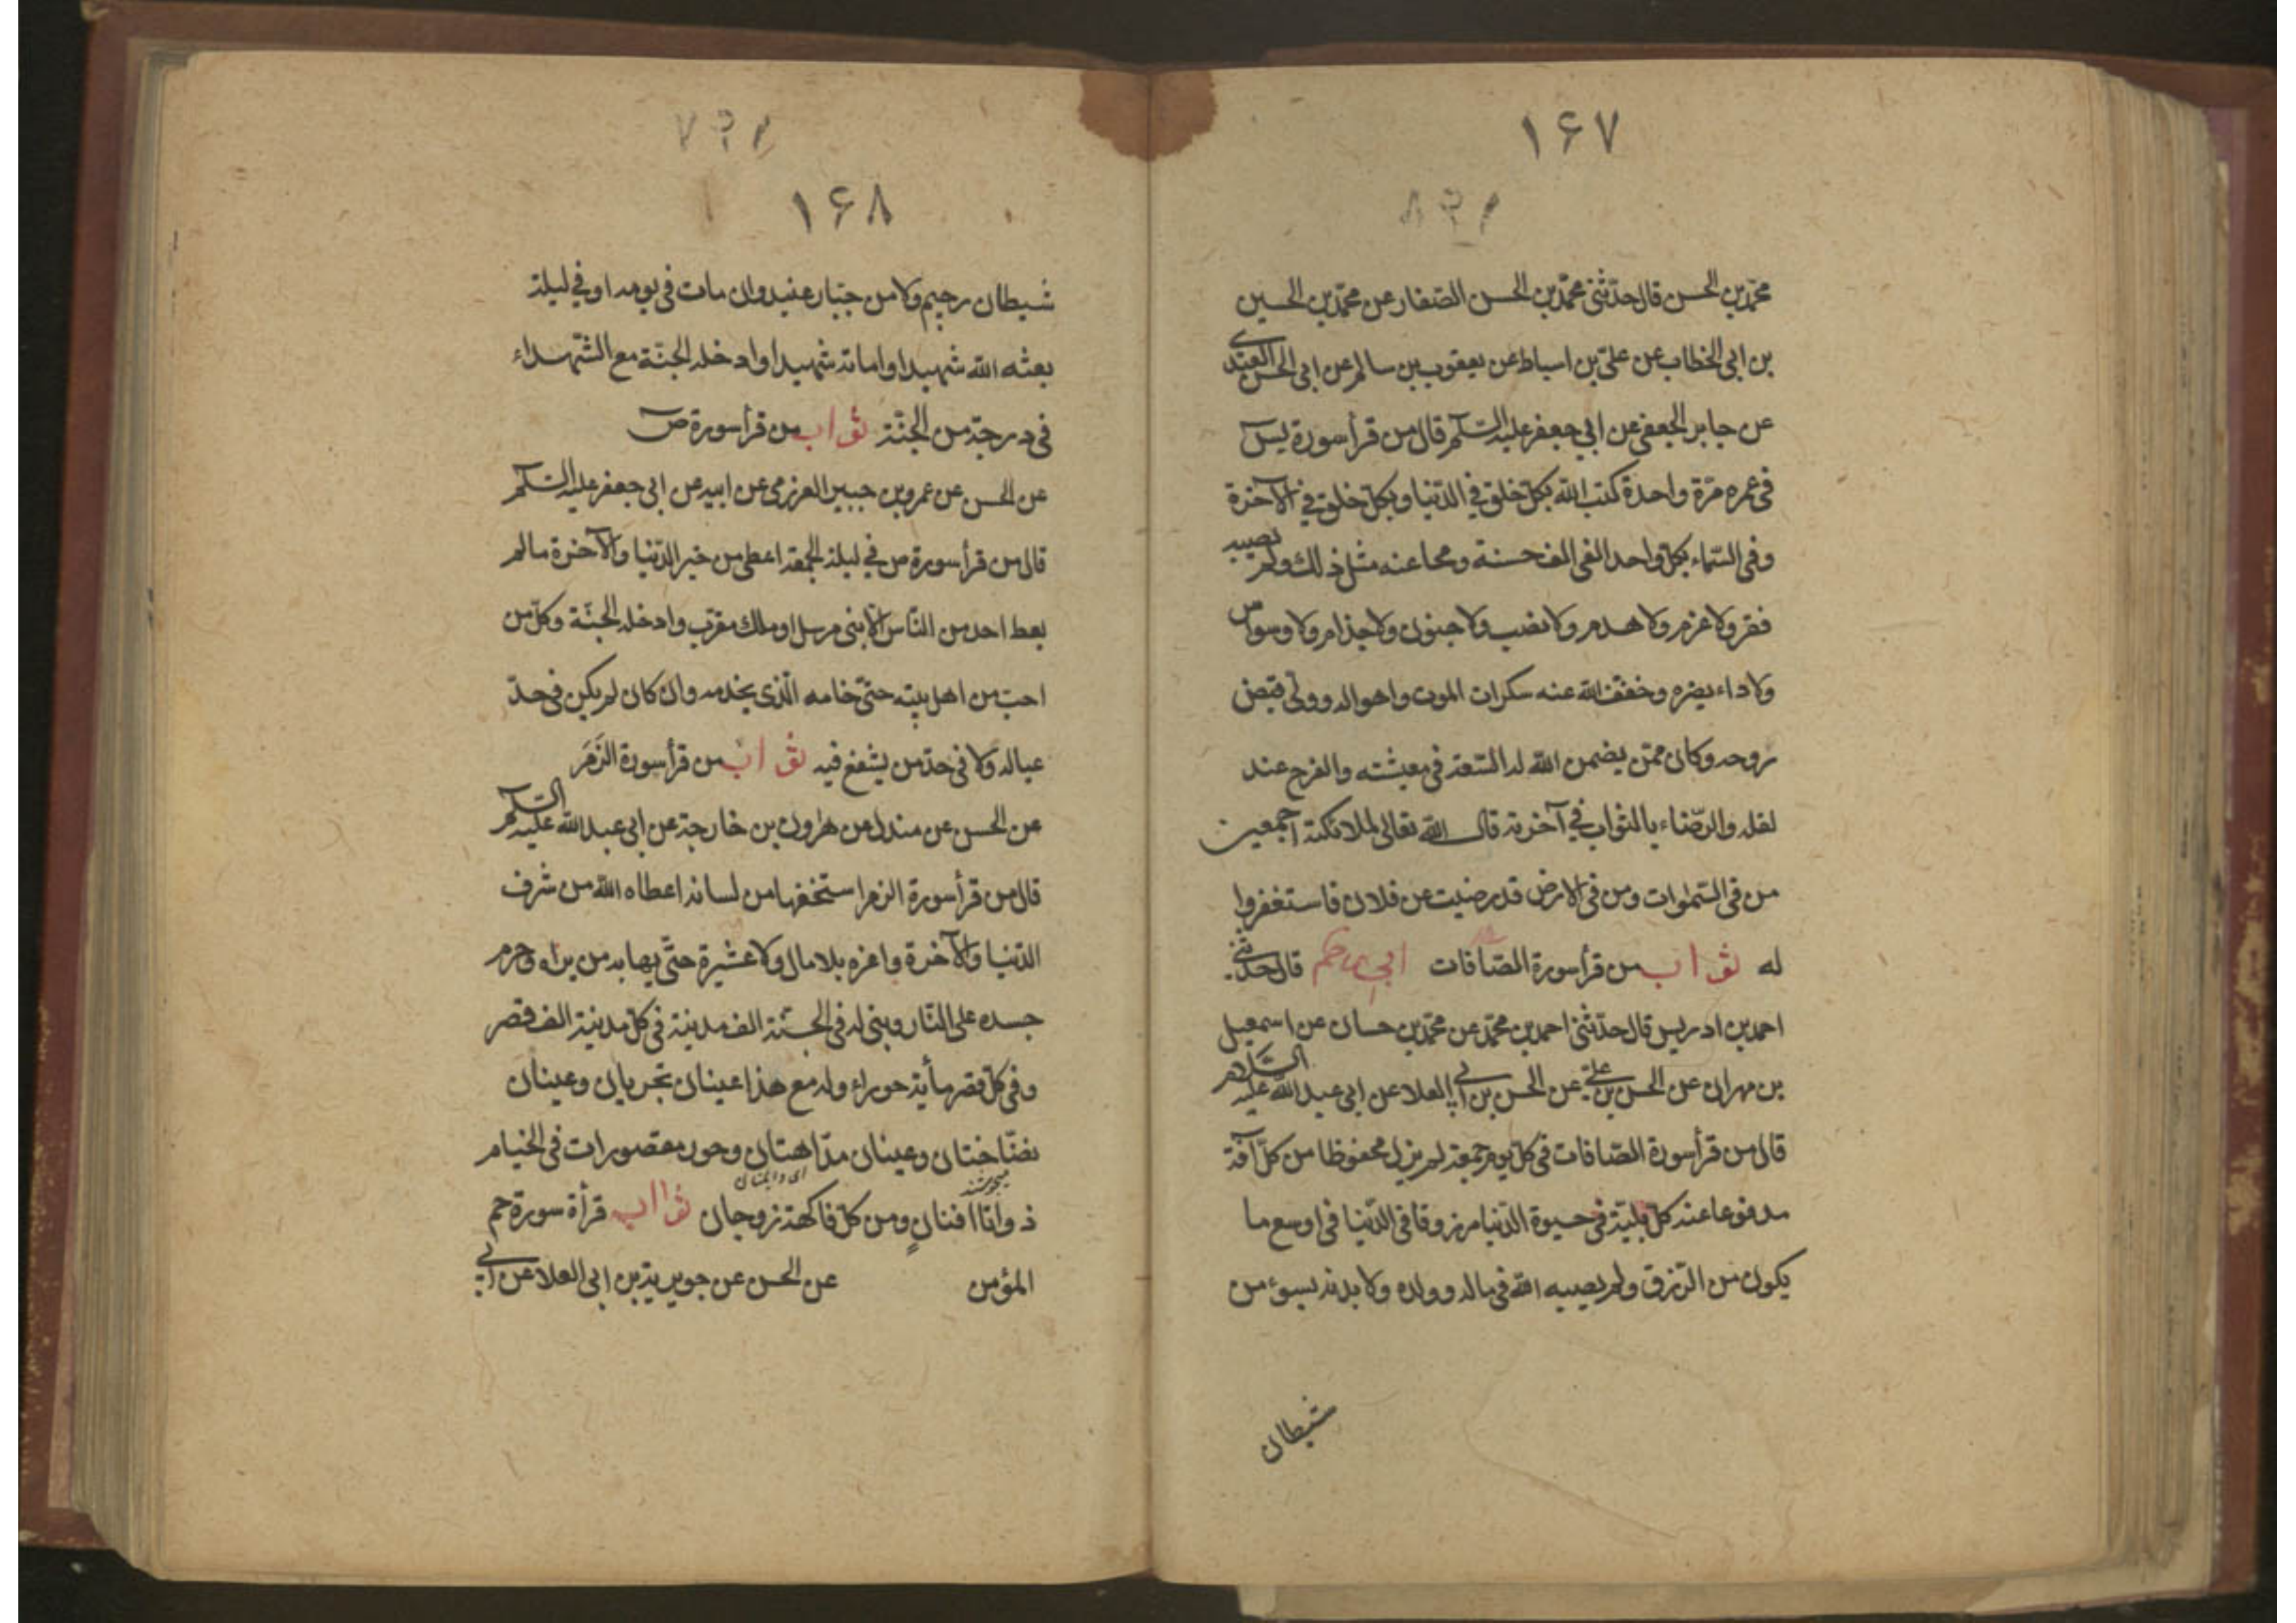 ۱۶۷
محمّد بن الحسن قال حدّثنى محمّد بن الحسن الصفار عن محمّد بن الحسين
بن ابى الخطاب عن علىّ بن اسباط عن يعقوب بن سالم عن ابى الحسن العبدى
عن جابر الجعفى عن ابى جعفر عليه السّلم قال من قرأ سورة يس
فى عمره مرّة واحدة كتب اللّه بكلّ خلق فى الدّنيا وبكلّ خلق فى الآخرة
وفى السّماء بكلّ واحد الفى الف حسنة ومحا عنه مثل ذلك ولم يصيبه
فقر ولا غرم ولا هدم ولا نصب ولا جنون ولا جذام ولا وسواس
ولا داء يضره وخفّف اللّه عنه سكرات الموت واهواله وولى قبض
روحه وكان ممّن يضمن اللّه له السّعة فى معيشته والفرح عند
لقائه والرّضاء بالثواب فى آخرته قال اللّه تعالى لملائكته اجمعين
من فى السّموات ومن فى الارض قد رضيت عن فلان فاستغفروا
له ثواب من قرأ سورة الصّافات ابى ره قال حدثنى
احمد بن ادريس قال حدّثنى احمد بن محمّد عن محمّد بن حسان عن اسمعيل
بن مهران عن الحسن بن علىّ عن الحسن بن ابى العلا عن ابى عبد اللّه عليه السّلام
قال من قرأ سورة الصّافات فى كلّ يوم جمعة لم يزل محفوظا من كلّ آفة
مدفوعا عنه كلّ بليّة فى حيوة الدّنيا مرزوقا فى الدّنيا فى اوسع ما
يكون من الرّزق ولم يصيبه اللّه فى ماله وولده ولا بدنه بسوء من
شيطان
۱۶۸
شيطان رجيم ولا من جبّار عنيد وان مات فى يومه او فى ليلته
بعثه اللّه شهيدا واماته شهيدا وادخله الجنّة مع الشّهداء
فى درجة من الجنّة ثواب من قرأ سورة ص
عن الحسن عن عمرو بن جبير العزرمى عن ابيه عن ابى جعفر عليه السّلم
قال من قرأ سورة ص فى ليلة الجمعة اعطى من خير الدّنيا والآخرة ما لم
يعط احد من النّاس الّا نبى مرسل او ملك مقرّب وادخله الجنّة وكلّ من
احبّ من اهل بيته حتّى خامه الّذى يخدمه وان كان لم يكن فى حدّ
عياله ولا فى حدّ من يشفع فيه ثواب من قرأ سورة الزّمر
عن الحسن عن مندل عن هرون بن خارجة عن ابى عبد اللّه عليه السّلم
قال من قرأ سورة الزمر استخفها من لسانه اعطاه اللّه من شرف
الدّنيا والآخرة واعزه بلا مال ولا عشيرة حتّى يهابه من يراه وحرم
جسده على النّار وبنى له فى الجنّة الف مدينة فى كلّ مدينة الف قصر
وفى كلّ قصر مأية حوراء وله مع هذا عينان تجريان وعينان
نضّاختان وعينان مدّاهتان وحور مقصورات فى الخيام
ميجوشند
ذواتا افنان ومن كلّ فاكهة زوجان ثواب قرأة سورة حم
المؤمن عن الحسن عن جويرية بن ابى العلا عن ابى